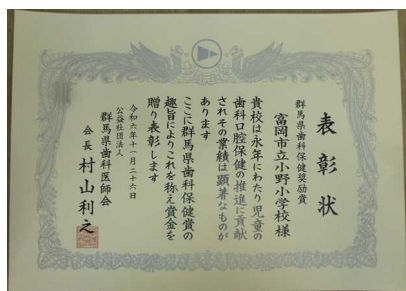 表彰状
群馬県歯科保健奨励賞
富岡市立小野小学校様
貴校は永年にわたり児童の
歯科口腔保健の推進に貢献
されその業績は顕著なものが
あります
ここに群馬県歯科保健賞の
趣旨によりこれを称え賞金を
贈り表彰します
令和六年十一月二十六日
公益社団法人
群馬県歯科医師会
会長 村山利之